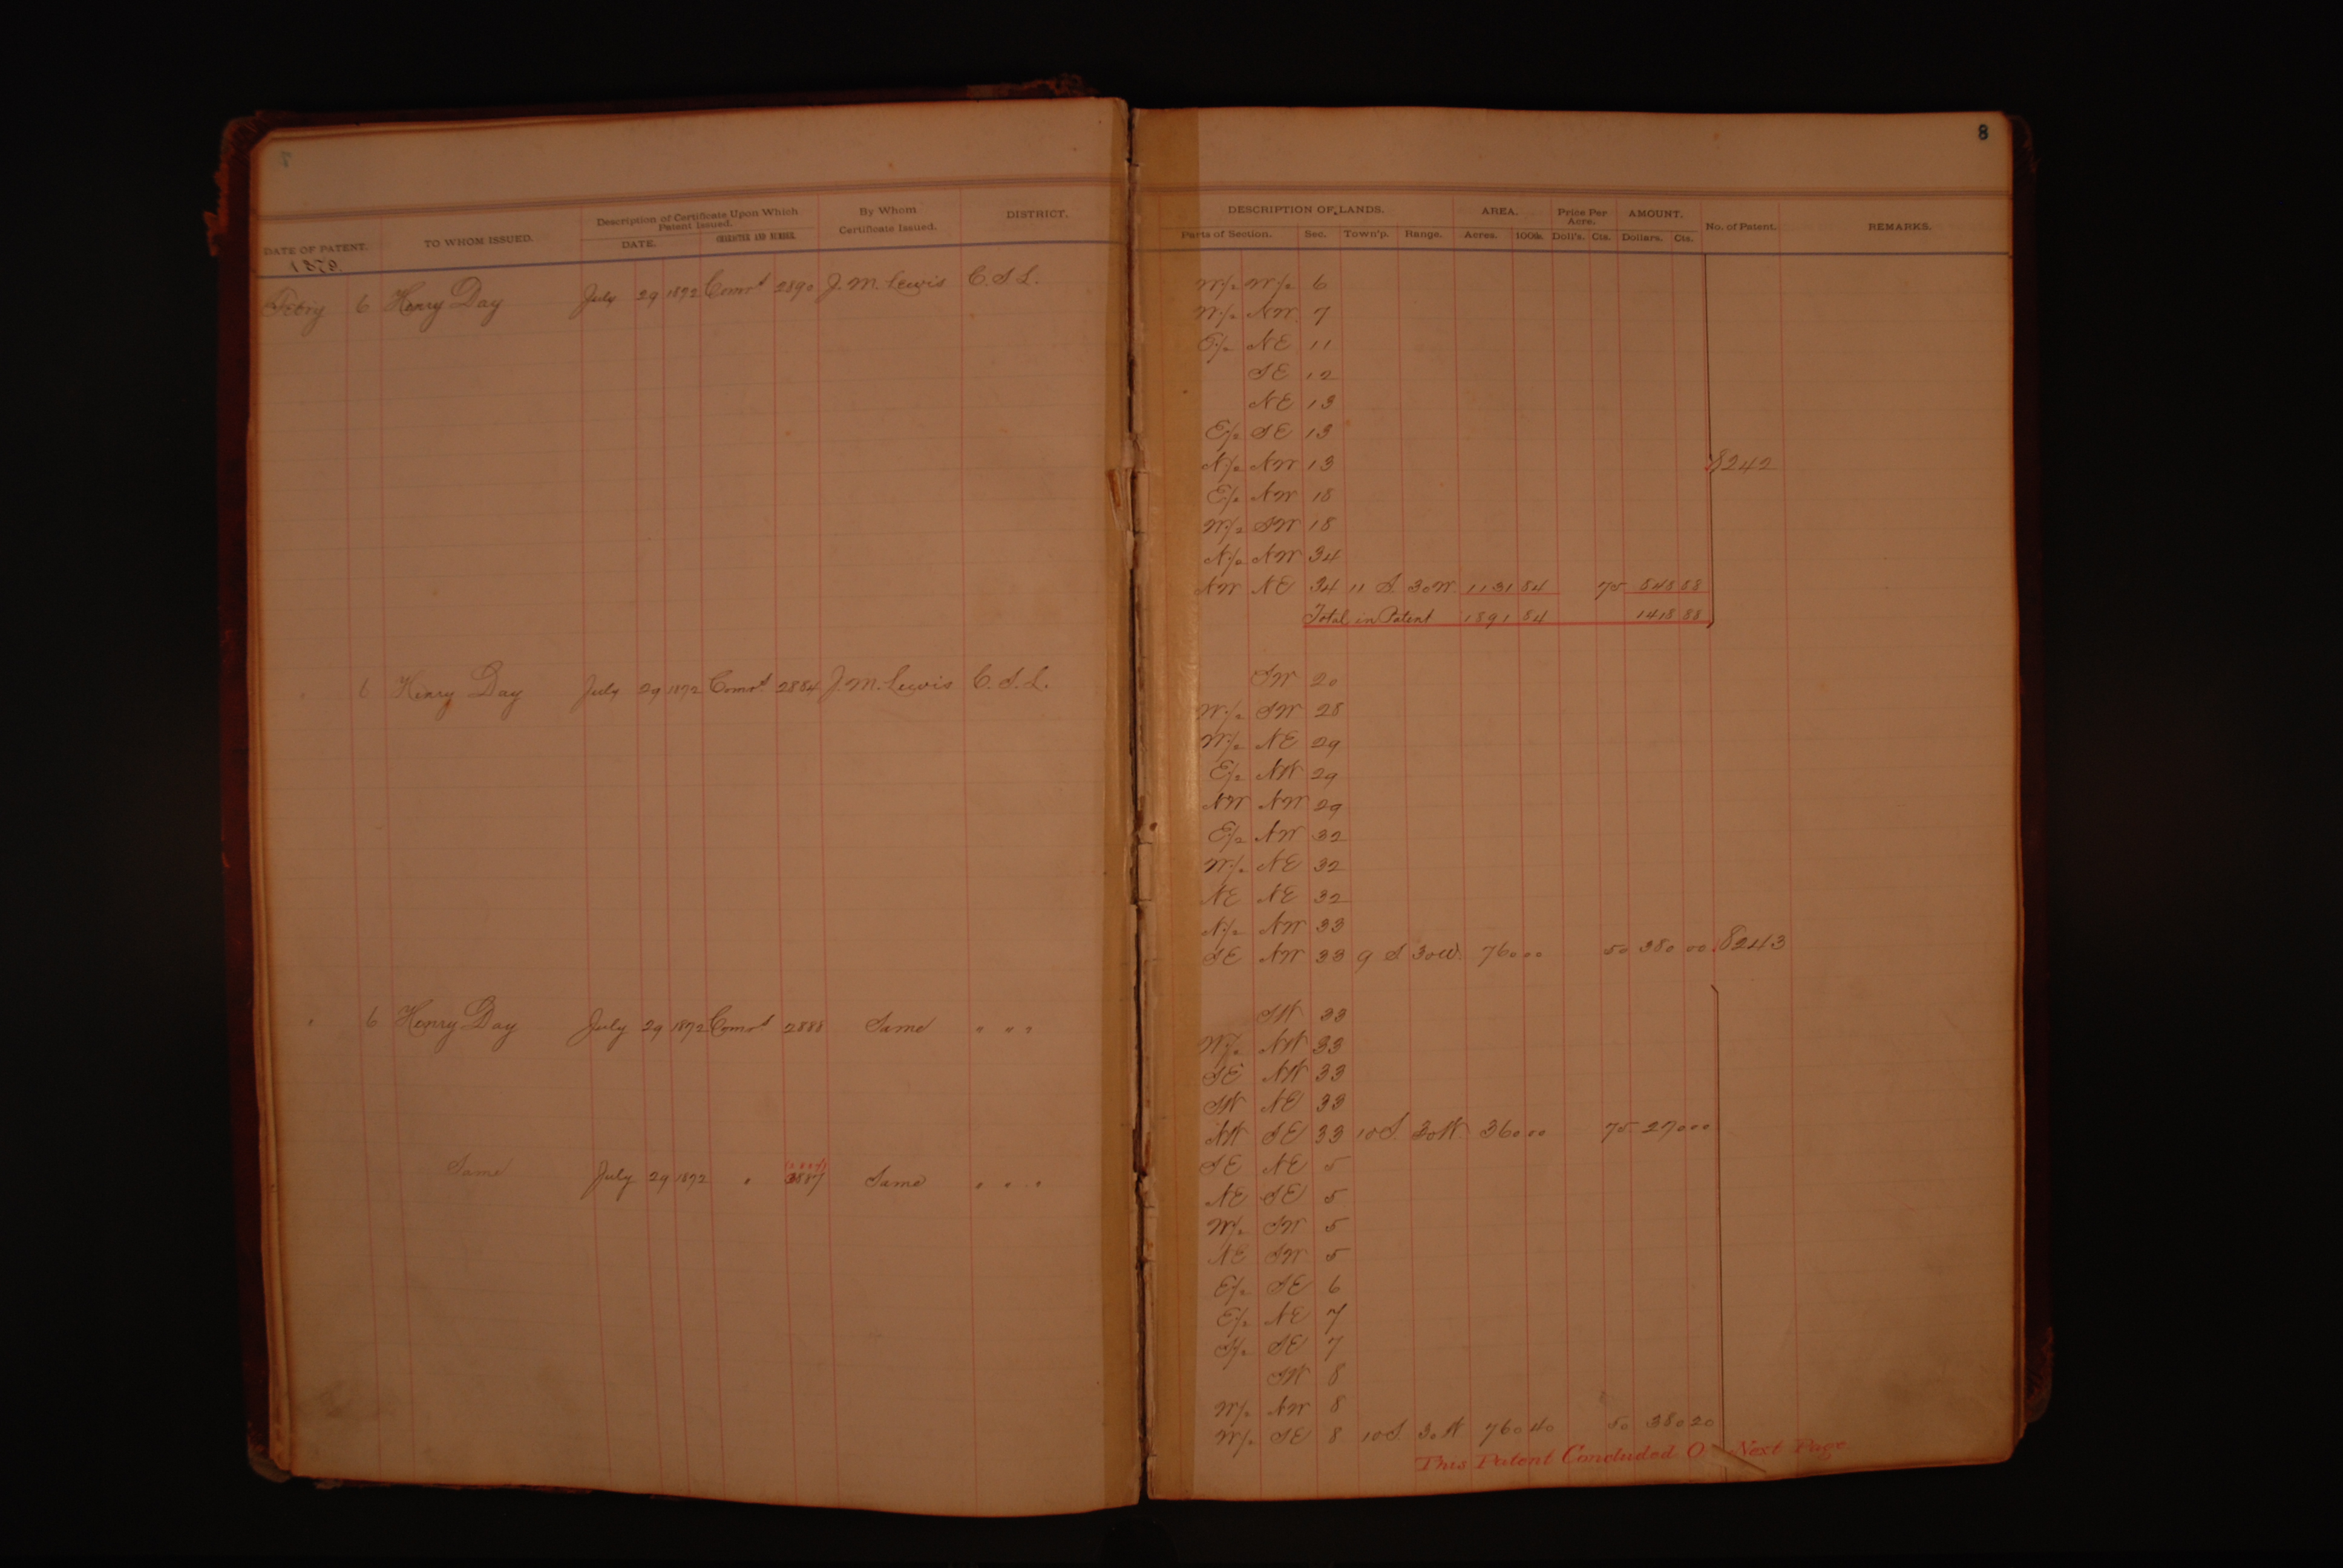 8
DATE OF PATENT. TO WHOM ISSUED. Description of Certificate Upon Which Patent Issued. DATE. CHARACTER AND NUMBER. By Whom Certificate Issued. DISTRICT.
DESCRIPTION OF LANDS. AREA. Price Per Acre. AMOUNT. No. of Patent. REMARKS.
Parts of Section. Sec. Town'p. Range. Acres. 100th. Doll's. Cts. Dollars. Cts.
1879.
Febry 6 Henry Day July 29 1872 Comr't 2890 J. M. Lewis C. S. L.
W/2 W/2 6
W/2 NW 7
E/2 NE 11
SE 12
NE 13
E/2 SE 13
N/2 NW 13
8242
E/2 NW 18
W/2 SW 18
N/2 NW 34
NW NE 34 11 S. 30W. 1131 84 75 848 88
Total in Patent 1891 84 1418 88
" 6 Henry Day July 29 1872 Comr't 2884 J. M. Lewis C. S. L.
SW 20
W/2 SW 28
W/2 NE 29
E/2 NW 29
NW NW 29
E/2 NW 32
W/2 NE 32
NE NE 32
N/2 NW 33
SE NW 33 9 S 30W. 760 00 50 380 00 8243
" 6 Henry Day July 29 1872 Comr't 2888 Same " " "
SW 33
W/2 NW 33
SE NW 33
SW NE 33
NW SE 33 10 S. 30W. 360 00 75 270 00
Same July 29 1872 " 2887 Same " " "
SE NE 5
NE SE 5
W/2 SW 5
NE SW 5
E/2 SE 6
E/2 NE 7
S/2 SE 7
SW 8
W/2 NW 8
W/2 SE 8 10 S. 30W 760 40 50 380 20
This Patent Concluded On Next Page